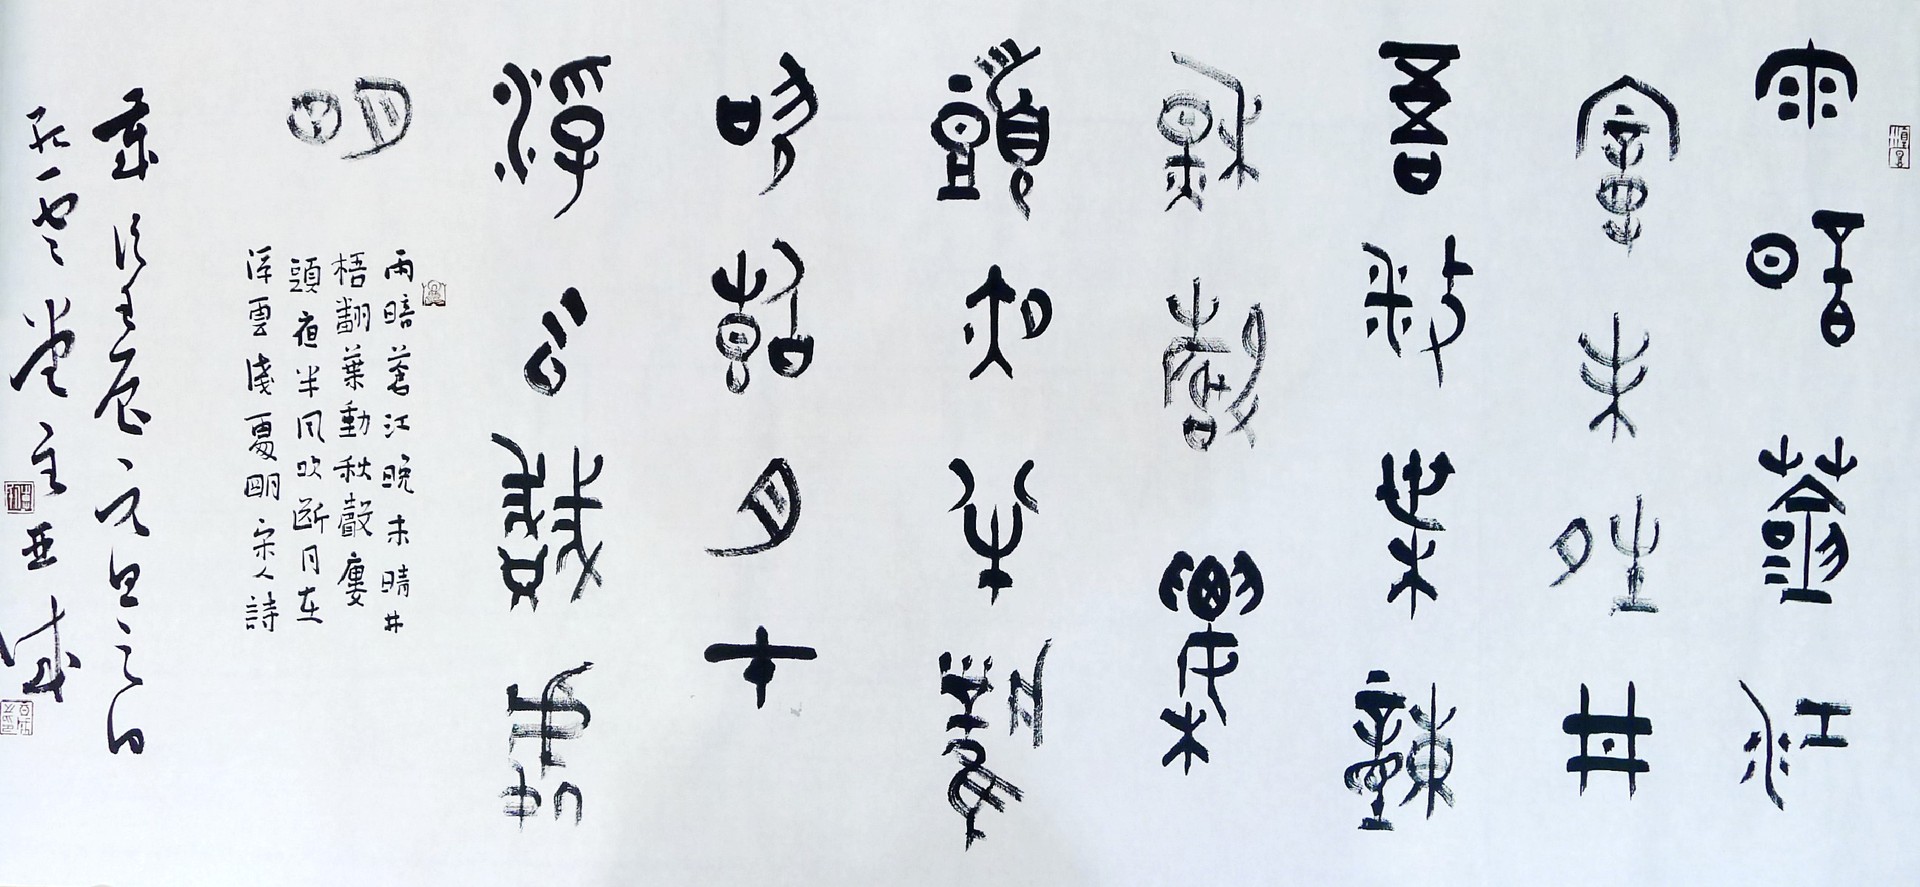 雨暗蒼江
晚未晴井
梧翻葉動
秋聲樓
頭夜半風
吹斷月在
浮雲淺處
明
雨暗蒼江晚未晴井
梧翻葉動秋聲廔
頭夜半風吹斷月在
浮雲淺處明宋人詩
歲次壬辰元旦之日
堂主亞